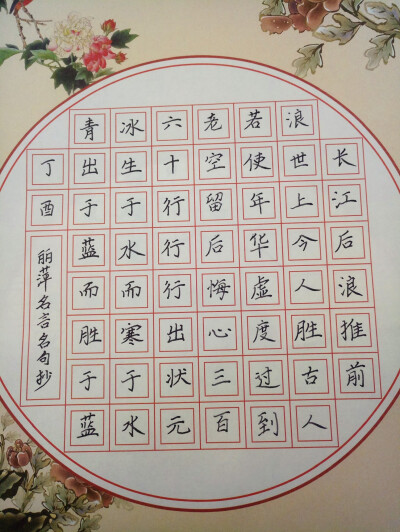 长江后浪推前
浪世上今人胜古人
若使年华虚度过到
老空留后悔心三百
六十行行行出状元
冰生于水而寒于水
青出于蓝而胜于蓝
丁酉
丽萍名言名句抄